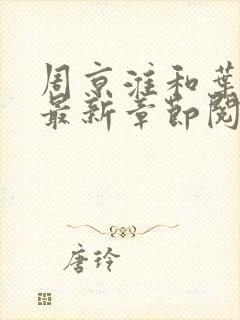 周京淮和葉
最新章節閱
唐玲